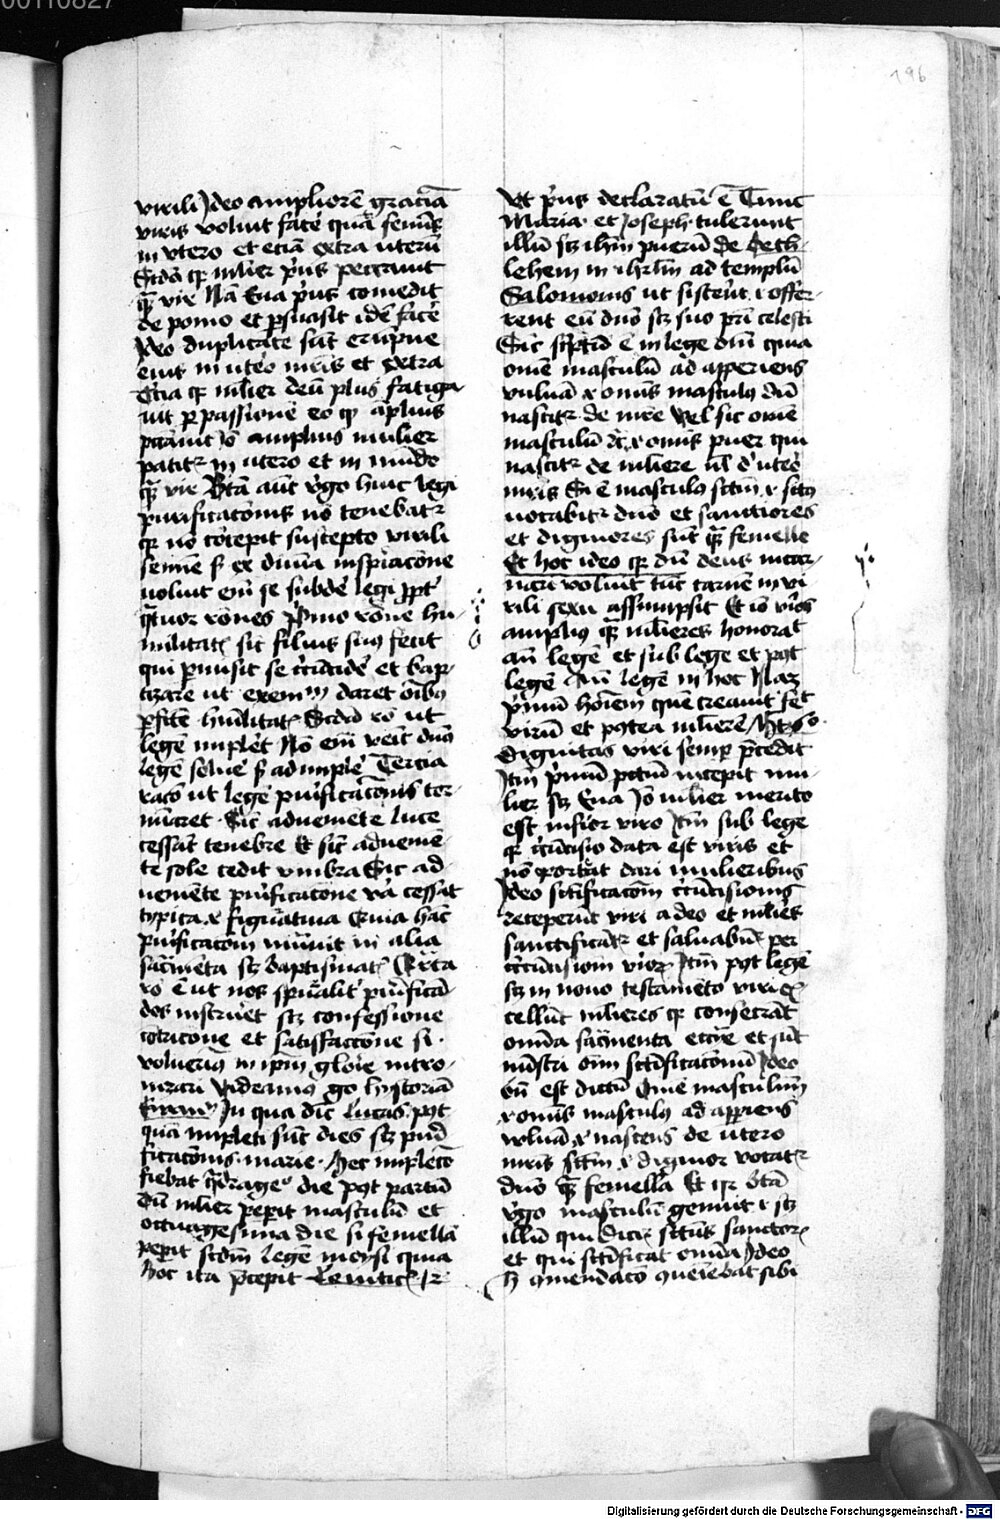 00110827
196
virili Ideo ampliorē graciā
viris voluit facē quā feminis
in vtero et eciā extra uterū
Scdo qr mlier prius peccavit
quā vir Nā Eua prius comedit
de pomo et psuasit idē facē
Ideo duplicate sūt erūpne
eius in utēo mris et extra
Tercia qr mlier deū plus fatiga
uit p passionē eo qr āplius
peccauit Iō amplius mulier
patitr in utero et in mūdo
quā vir Btā aūt vgo huic legi
purificacōnis nō tenebatr
qr nō cōcepit suscepto virili
semīe sz ex diuīa inspiracōne
uoluit em̄ se subdē legi ppt
qtuor rōnes Primo rōne hu
militatis sic filius suus fecit
qui pmisit se circūcidē et bap
tizare ut exemplū daret oībus
pfecte hūilitatis Scda rō ut
legē implēt Nō em̄ venit dns
legē soluē sz adimplē Tercia
racō ut legē purificacōnis ter
minaret Sic adueniēte luce
cessāt tenebre Et sic adueniē
te sole cedit umbra Sic ad
ueniēte purificacōne va cessat
typica et figuratiua Quia hāc
purificacōm mutauit in alia
sacramēta sz baptismatis Qrta
rō ē ut nos spūalit purifican
dos instruēt sz confessione
cōtricōne et satisfaccōne si
voluerimus in ipm glorie intro
mitti Videamus go hystoriā
Ewangelij In qua dic Lucas pqt
quā impleti sūt dies sz puri
ficacōnis marie hec impleco
fiebat qdragesio die pqt partū
Dū mlier peperit masculū et
octuagesima die si femellā
peperit scdm legē moysi quia
hoc ita pcepit Leuitici 12
Vt prius declaratū ē Tunc
Maria et Ioseph tulerunt
illū sz ihm puerū de Beth
lehem in ihrlm ad templū
Salomonis ut sisterēt et offer
rent eū dno sz suo pri celesti
Sic scptū ē in lege dni quia
omē masculū ad apperiens
vuluā et omnis masculus dū
nascitr de mre Vel sic omē
masculū etc et omnis puer qui
nascitr de mliere ul d utēo
mris Si ē masculus sctm et sctus
uocabitr dno et sanctiores
et digniores sūt quā femelle
Et hoc ideo qr dū deus incar
nari voluit tūc carnē in vi
rili sexu assumpsit Et iō viros
amplius quā mlieres honorat
an legē et sub lege et pqt
legē An legē in hoc Nam
primū hoīem quē creauit fecit
virū et pqtea mlierē
dignitas viri semp pcedit
Itm primū pctm incepit mu
lier sz Eua Iō mlier merito
est inferior viro Itm sub lege
qr circūcisio data est viris et
nō oportuit dari mulieribus
Ideo sctificacōm circūcisionis
receperūt viri a deo et mlieres
sanctificātr et saluabūtr per
circūcisiom virorum Itm pqt legē
sz in nouo testamēto viri ex
cellūt mlieres qr consecrāt
omīa sacramenta eccie et sūt
mistri omīm sctificacōnū Ideo
bn est dictū Omē masculinū
et omnis masculus ad apperiens
vuluā et nascens de utero
mris sctm et dignior vocatr
dno quā femella Et qr btā
vgo masculū genuit et sz
illū qui dicitr sctus sanctorum
et qui sctificat omīa Ideo
hec comendacō conueniebat sibi
Digitalisierung gefördert durch die Deutsche Forschungsgemeinschaft - DFG